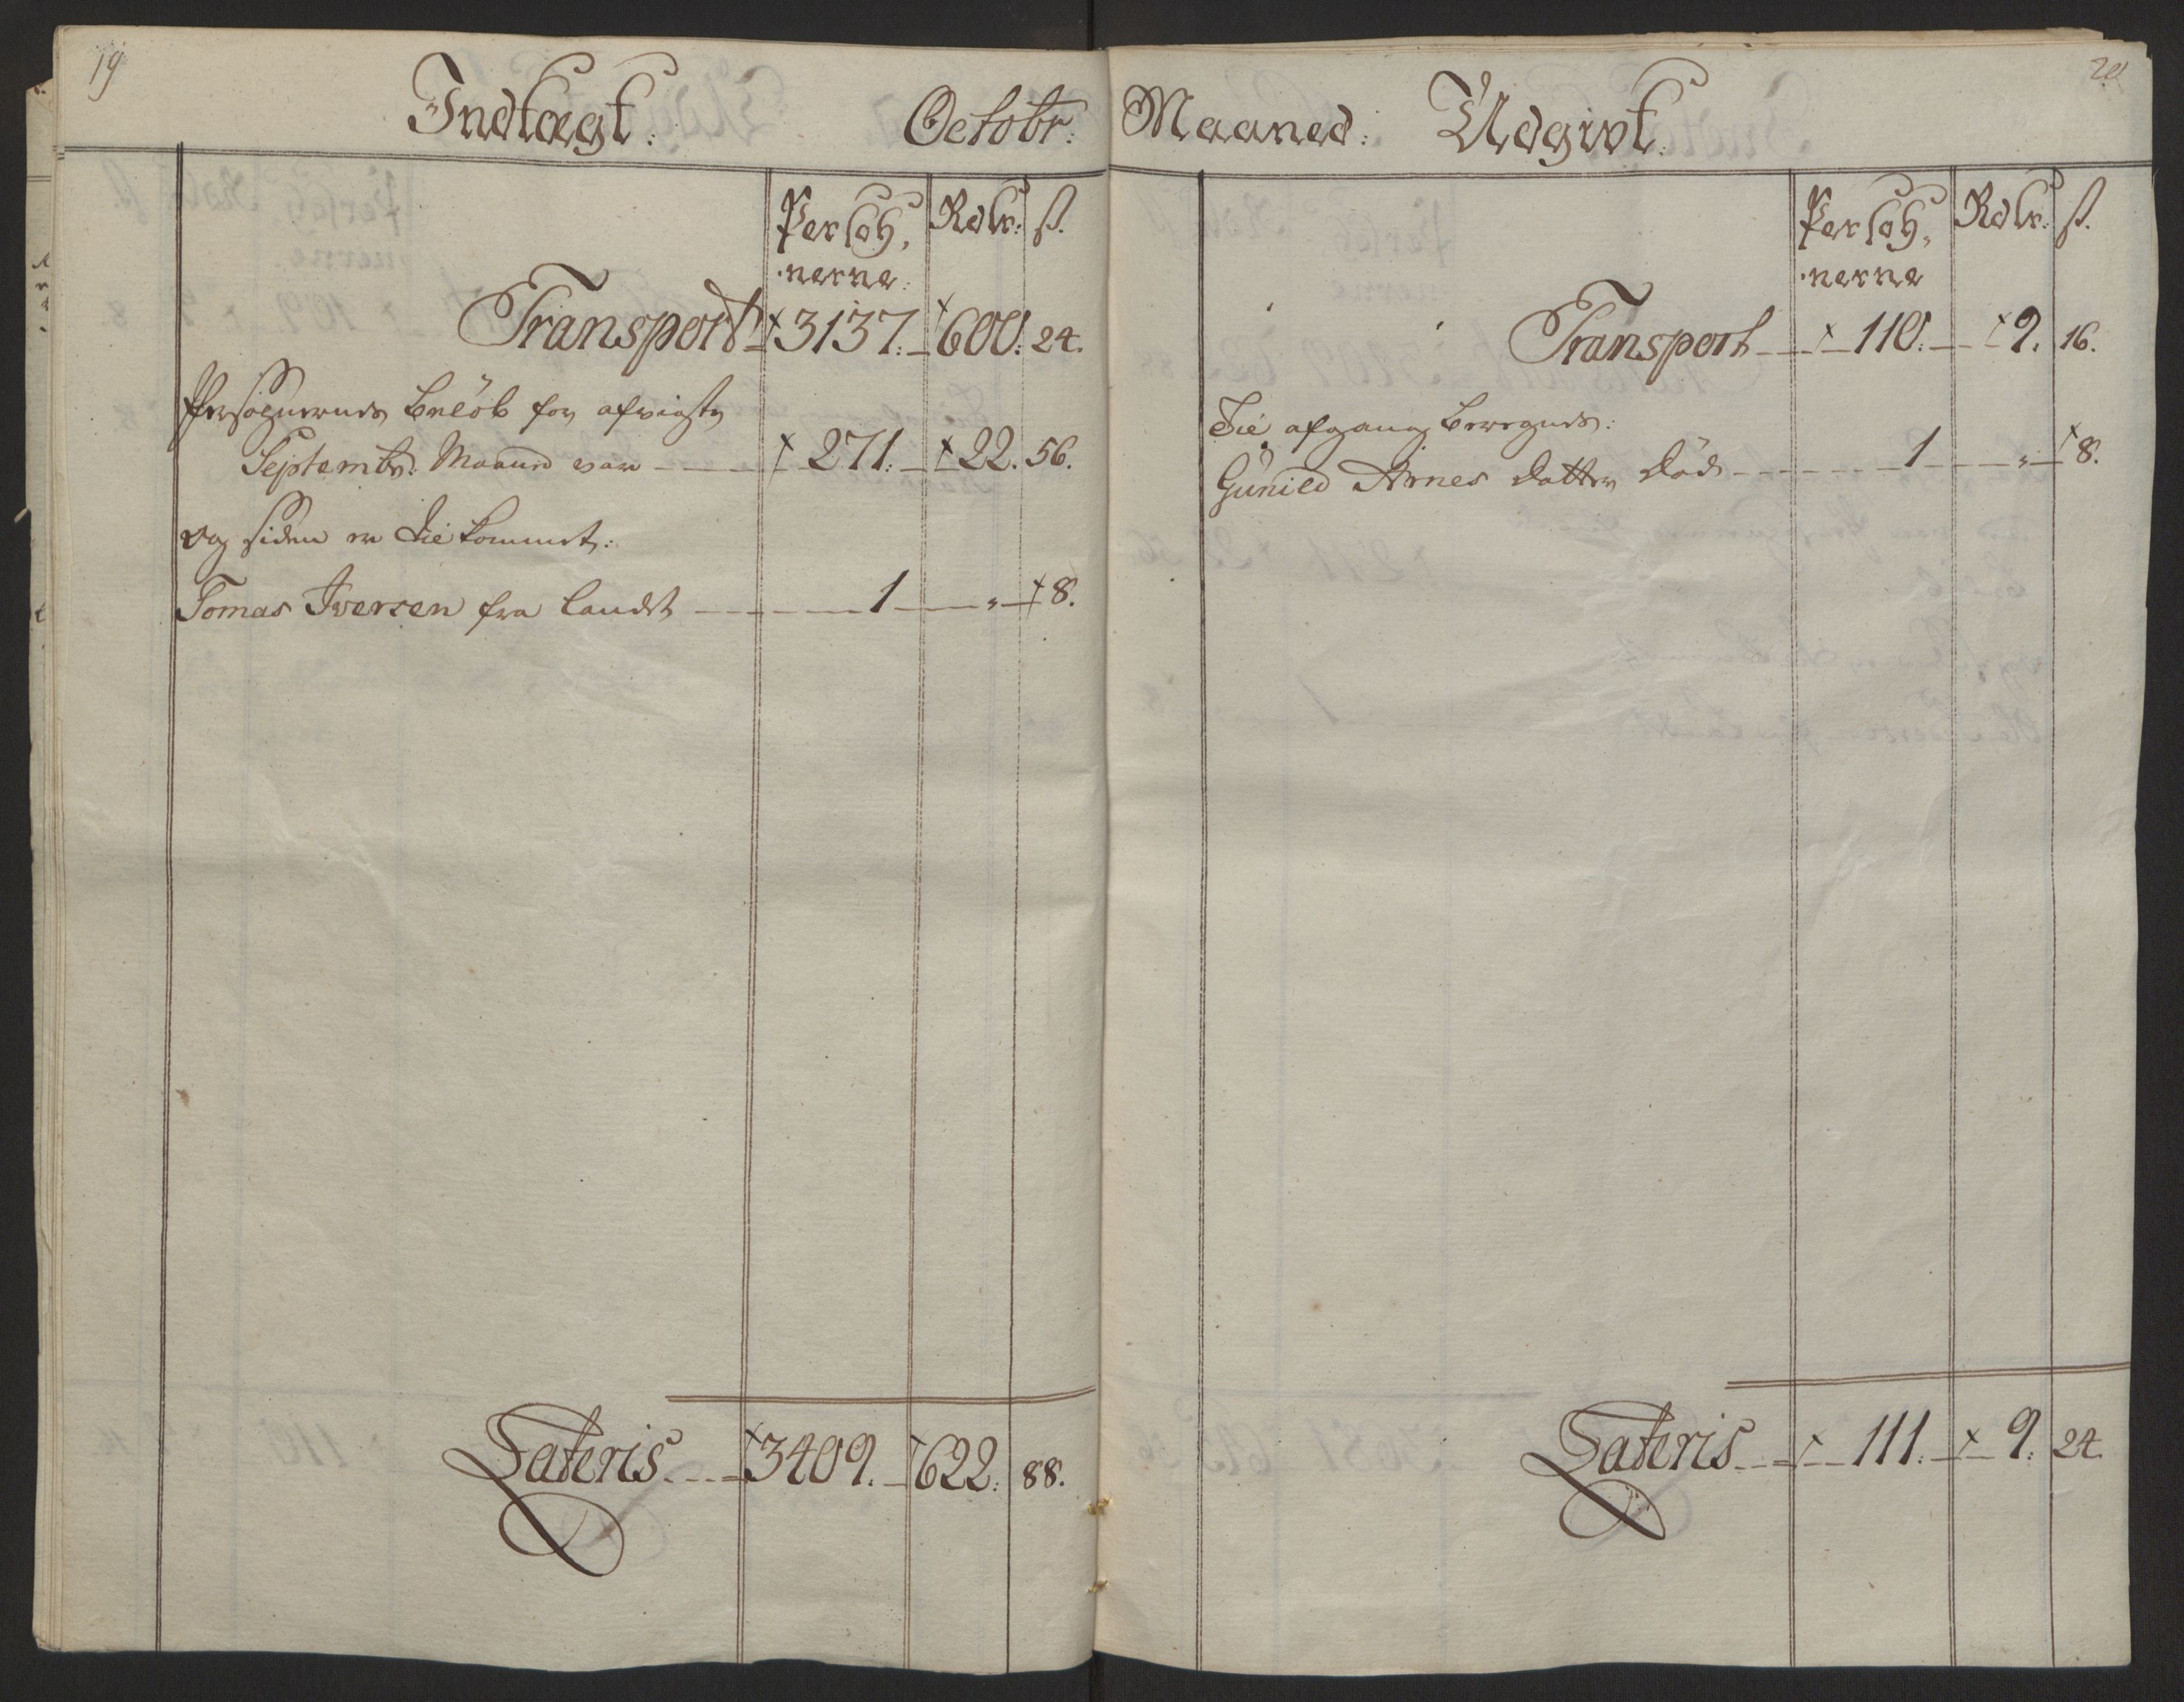 19
Indtægt: Octobr:
Persoh, Rdlr: ß.
nerne:
Transport 3137. 600. 24.
Persohnernes beløb for afvigte
Septembr: Maaned var 271. 22. 56.
og siden er tilkommet:
Tomas Iversen fra landet 1 " 8.
Lateris 3409. 622. 88.
20
Maaned: Udgivt:
Persoh, Rdlr: ß.
nerne
Transport 110. 9. 16.
Til afgang beregnes:
Gunild Arnes datter død 1 " 8.
Lateris 111. 9. 24.